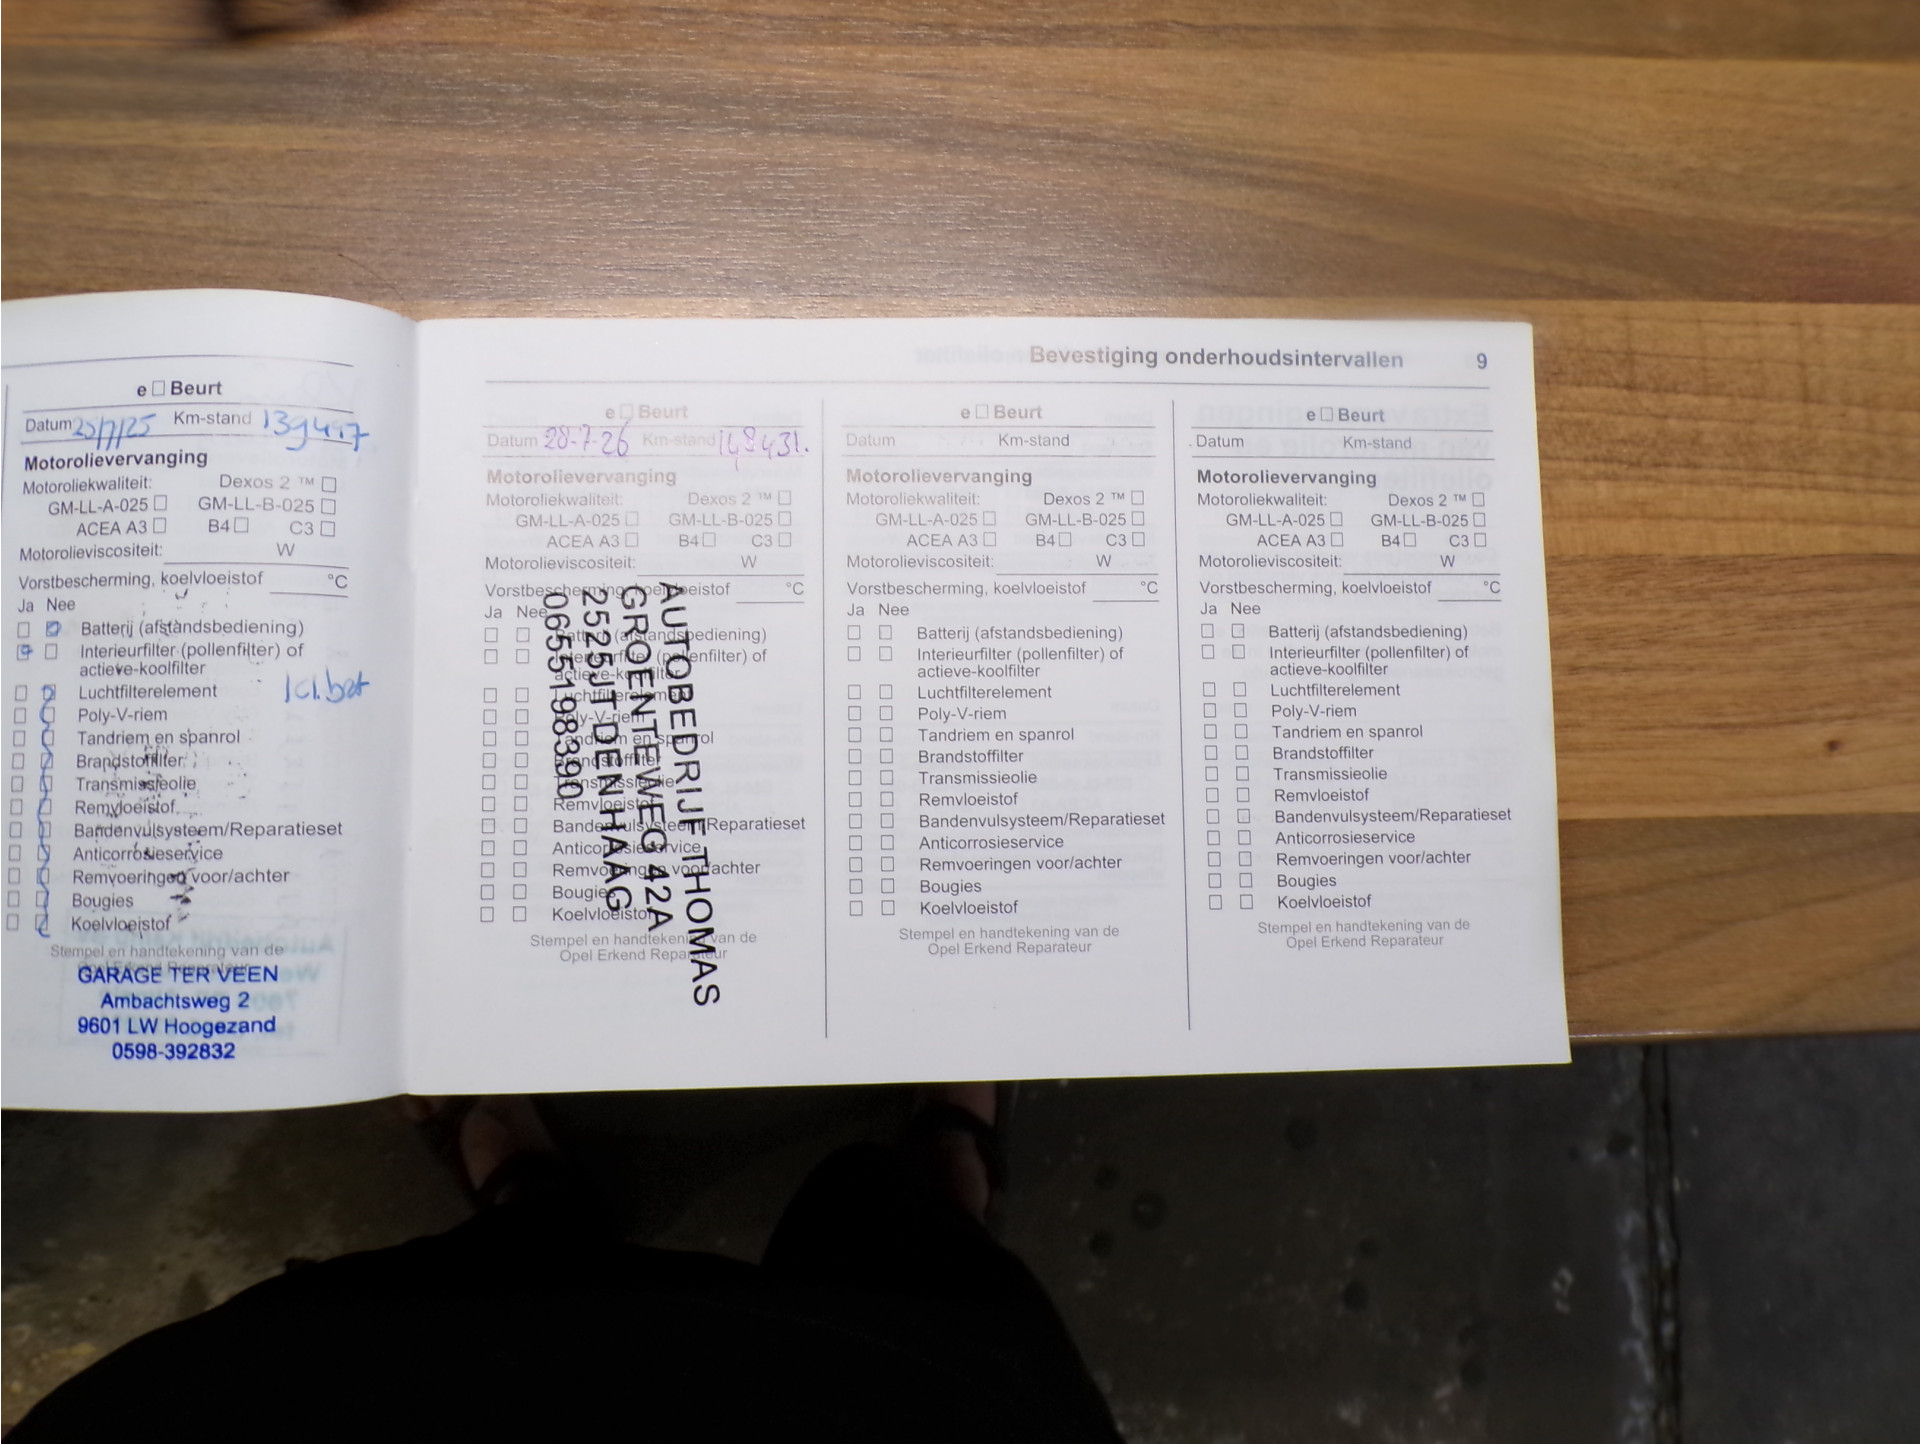 e □ Beurt
Datum 25/7/25 Km-stand 139447
Motorolievervanging
Motoroliekwaliteit: Dexos 2 ™ □
GM-LL-A-025 □ GM-LL-B-025 □
ACEA A3 □ B4 □ C3 □
Motorolieviscositeit: W
Vorstbescherming, koelvloeistof °C
Ja Nee
Batterij (afstandsbediening)
Interieurfilter (pollenfilter) of
actieve-koolfilter
Luchtfilterelement
Poly-V-riem
Tandriem en spanrol
Brandstoffilter
Transmissieolie
Remvloeistof
Bandenvulsysteem/Reparatieset
Anticorrosieservice
Remvoeringen voor/achter
Bougies
Koelvloeistof
Stempel en handtekening van de
Opel Erkend Reparateur
GARAGE TER VEEN
Ambachtsweg 2
9601 LW Hoogezand
0598-392832
Bevestiging onderhoudsintervallen 9
e □ Beurt
Datum 28-7-26 Km-stand 148431.
Motorolievervanging
Motoroliekwaliteit: Dexos 2 ™ □
GM-LL-A-025 □ GM-LL-B-025 □
ACEA A3 □ B4 □ C3 □
Motorolieviscositeit: W
Vorstbescherming, koelvloeistof °C
Ja Nee
Batterij (afstandsbediening)
Interieurfilter (pollenfilter) of
actieve-koolfilter
Luchtfilterelement
Poly-V-riem
Tandriem en spanrol
Brandstoffilter
Transmissieolie
Remvloeistof
Bandenvulsysteem/Reparatieset
Anticorrosieservice
Remvoeringen voor/achter
Bougies
Koelvloeistof
Stempel en handtekening van de
Opel Erkend Reparateur
AUTOBEDRIJF THOMAS
GROENTEWEG 42A
2525JT DEN HAAG
0655198390
e □ Beurt
Datum Km-stand
Motorolievervanging
Motoroliekwaliteit: Dexos 2 ™ □
GM-LL-A-025 □ GM-LL-B-025 □
ACEA A3 □ B4 □ C3 □
Motorolieviscositeit: W
Vorstbescherming, koelvloeistof °C
Ja Nee
Batterij (afstandsbediening)
Interieurfilter (pollenfilter) of
actieve-koolfilter
Luchtfilterelement
Poly-V-riem
Tandriem en spanrol
Brandstoffilter
Transmissieolie
Remvloeistof
Bandenvulsysteem/Reparatieset
Anticorrosieservice
Remvoeringen voor/achter
Bougies
Koelvloeistof
Stempel en handtekening van de
Opel Erkend Reparateur
e □ Beurt
Datum Km-stand
Motorolievervanging
Motoroliekwaliteit: Dexos 2 ™ □
GM-LL-A-025 □ GM-LL-B-025 □
ACEA A3 □ B4 □ C3 □
Motorolieviscositeit: W
Vorstbescherming, koelvloeistof °C
Ja Nee
Batterij (afstandsbediening)
Interieurfilter (pollenfilter) of
actieve-koolfilter
Luchtfilterelement
Poly-V-riem
Tandriem en spanrol
Brandstoffilter
Transmissieolie
Remvloeistof
Bandenvulsysteem/Reparatieset
Anticorrosieservice
Remvoeringen voor/achter
Bougies
Koelvloeistof
Stempel en handtekening van de
Opel Erkend Reparateur